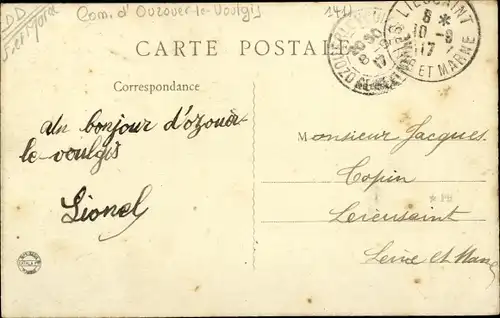 Com. d'Ouzouer-le-Voulgis
CARTE POSTALE
LIEUSAINT
8 *
10-8
17
ET MARNE
10 30
8
17
Correspondance
un bonjour d'ozouer
le-voulgis
Lionel
Monsieur Jacques
Copin
Lieusaint
Seine et Marne